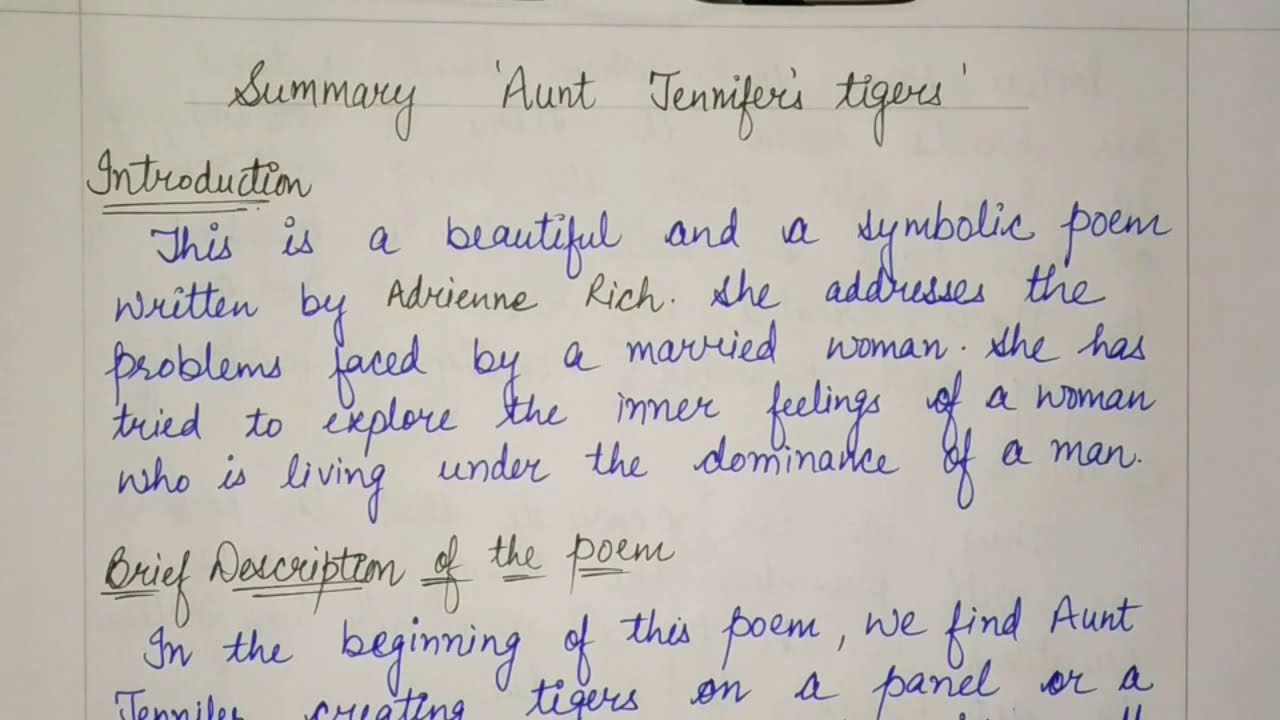 Summary 'Aunt Jennifer's tigers'
Introduction
This is a beautiful and a symbolic poem
written by Adrienne Rich. She addresses the
problems faced by a married woman. She has
tried to explore the inner feelings of a woman
who is living under the dominance of a man.
Brief Description of the poem
In the beginning of this poem, we find Aunt
Jennifer creating tigers on a panel or a